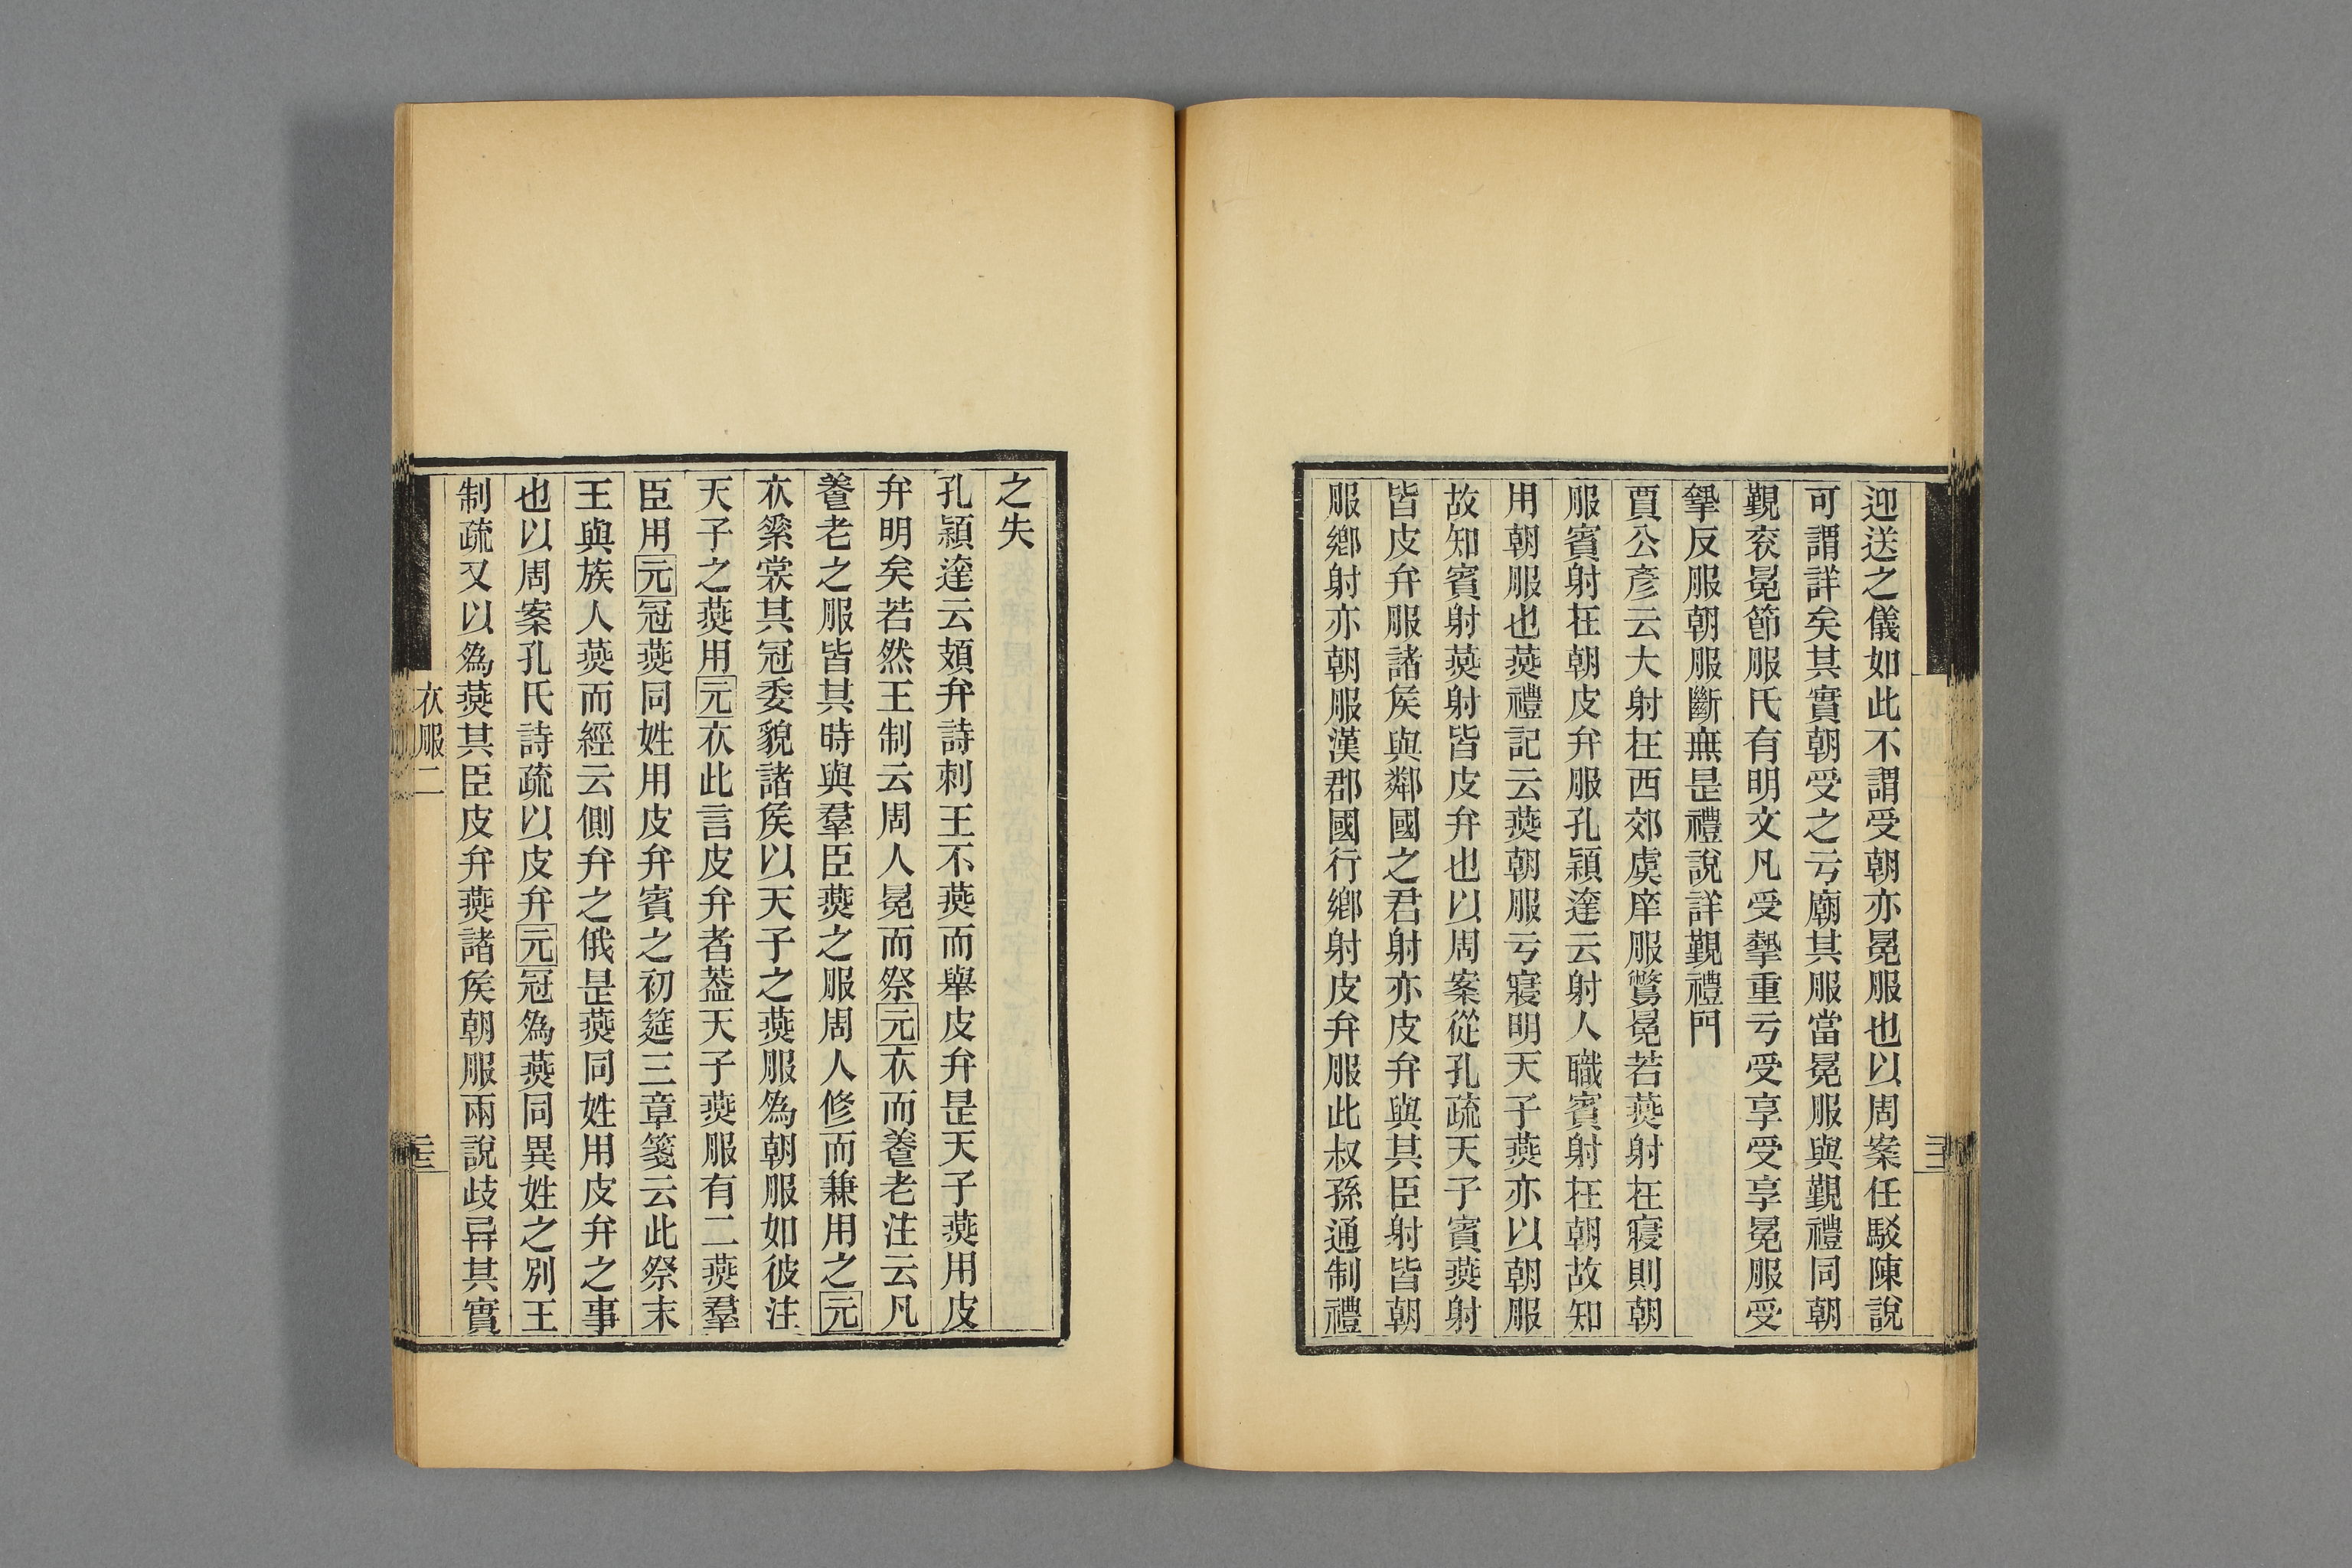 迎送之儀如此不謂受朝亦冕服也以周案任駁陳說
可謂詳矣其實朝受之亏廟其服當冕服與覲禮同朝
覲衮冕節服氏有明文凡受摯重亏受享受享冕服受
摯反服朝服斷無是禮說詳覲禮門
賈公彥云大射在西郊虞庠服鷩冕若燕射在寢則朝
服賓射在朝皮弁服孔穎達云射人職賓射在朝故知
用朝服也燕禮記云燕朝服亏寢明天子燕亦以朝服
故知賓射燕射皆皮弁也以周案從孔疏天子賓燕射
皆皮弁服諸矦與鄰國之君射亦皮弁與其臣射皆朝
服鄉射亦朝服漢郡國行鄉射皮弁服此叔孫通制禮
之失
孔穎達云頍弁詩刺王不燕而舉皮弁是天子燕用皮
弁明矣若然王制云周人冕而祭元衣而養老注云凡
養老之服皆其時與羣臣燕之服周人修而兼用之元
衣絫裳其冠委貌諸矦以天子之燕服為朝服如彼注
天子之燕用元衣此言皮弁者蓋天子燕服有二燕羣
臣用元冠燕同姓用皮弁賓之初筵三章箋云此祭末
王與族人燕而經云側弁之俄是燕同姓用皮弁之事
也以周案孔氏詩疏以皮弁元冠為燕同異姓之別王
制疏又以為燕其臣皮弁燕諸矦朝服兩說歧异其實
衣服二